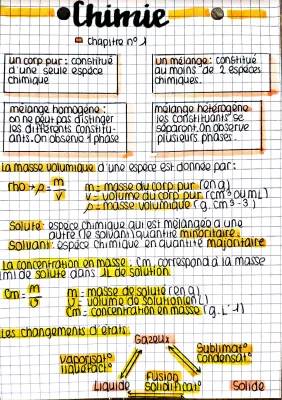 Chimie
chapitre n° 1
un corp pur : constitué
d'une seule espèce
chimique
un mélange : constitué
au moins de 2 espèces
chimiques.
mélange homogène :
on ne peut pas distinger
les différents constitu-
ants. On observe 1 phase
mélange hétérogène
les constituants se
séparent. On observe
plusieurs phases.
La masse volumique d'une espèce est donnée par :
rho → ρ = m/v
m = masse du corp pur (en g)
v = volume du corp pur (cm³ ou mL)
ρ = masse volumique (g. cm^-3)
Soluté : espèce chimique qui est mélangée à une
autre (le solvant) quantité minoritaire.
Solvant : espèce chimique en quantité majoritaire
La concentration en masse : Cm, correspond à la masse
(m) de soluté dans 1L de solution.
Cm = m/v
m = masse de soluté (en g)
v = volume de solution (en L)
Cm = concentration en masse (g.L^-1)
Les changements d'états :
Gazeux
Vaporisat°
liquéfact°
Sublimat°
condensat°
Fusion
Liquide
solidificat°
Solide